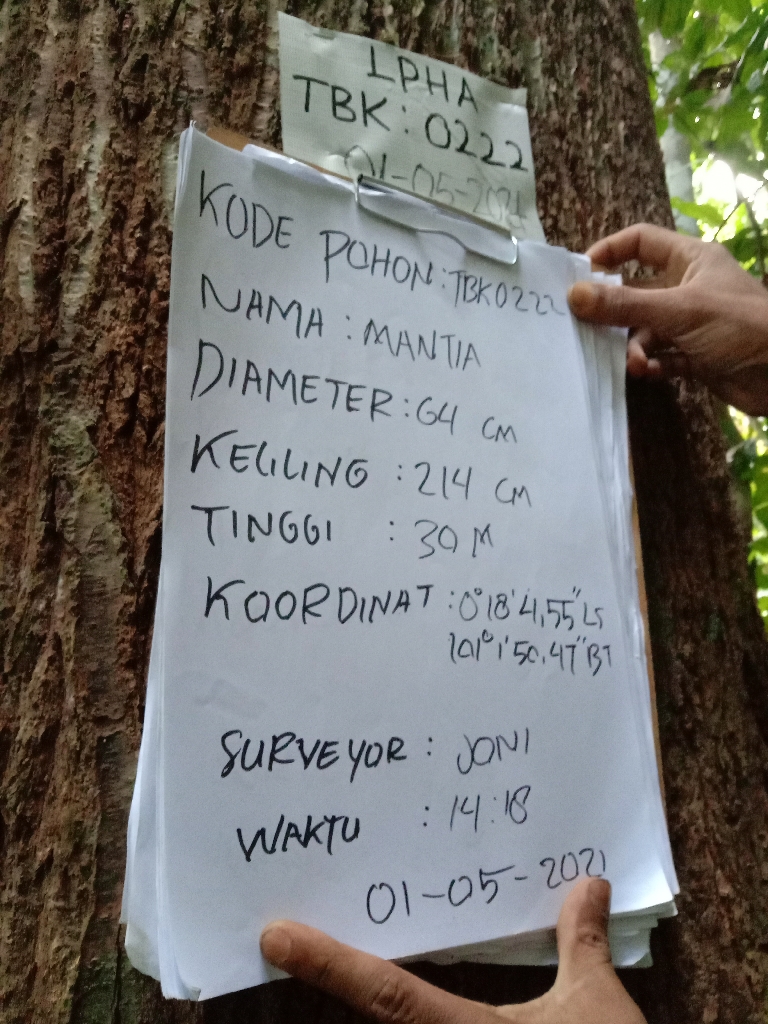 LPHA
TBK: 0222
01-05-2021
KODE POHON: TBK0222
NAMA : MANTIA
DIAMETER: 64 CM
KELILING : 214 CM
TINGGI : 30 M
KOORDINAT : 0°18'4,55" LS
101°1'50,47" BT
SURVEYOR : JONI
WAKTU : 14:18
01-05-2021